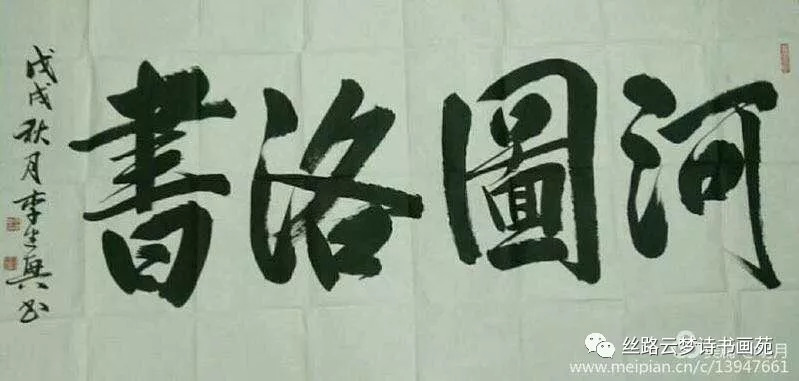 河圖洛書
戊戌秋月李生興书
丝路云梦诗书画苑
www.meipian.cn/c/13947661